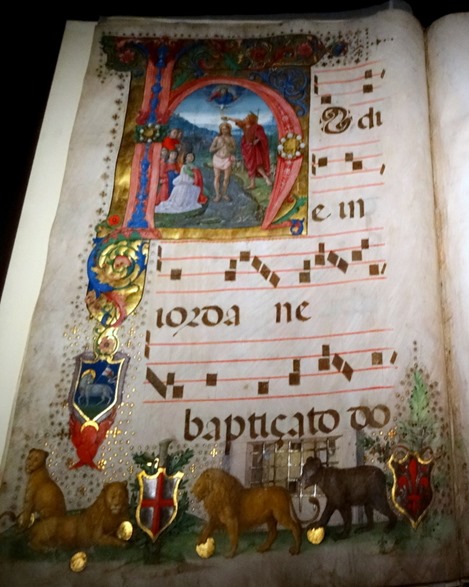 HOdi
e in
iorda ne
baptiçato do